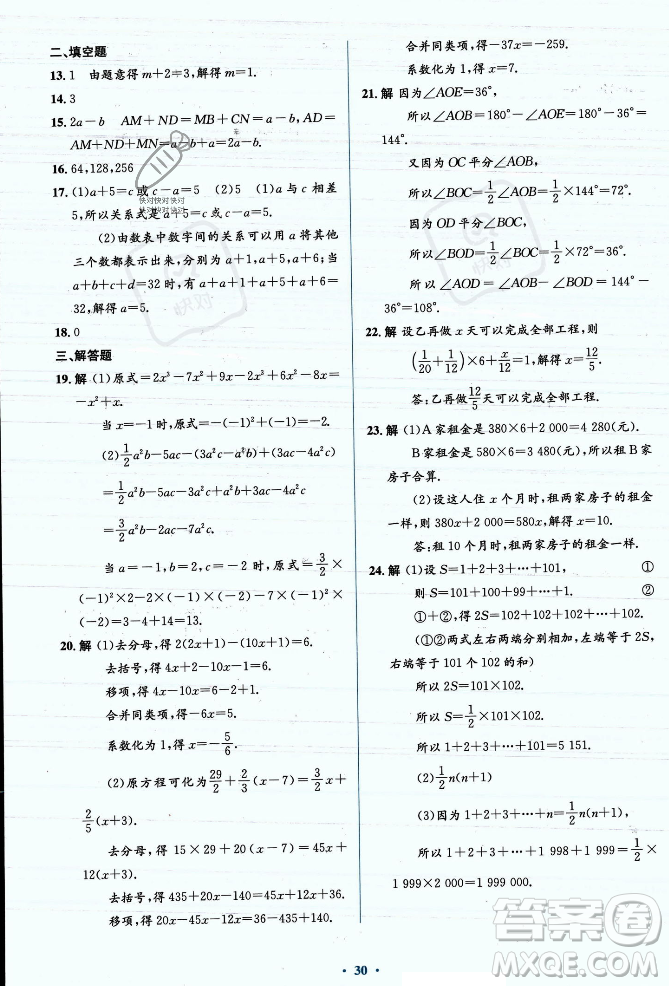 二、填空题
13. 1　由题意得 m+2=3,解得 m=1.
14. 3
15. 2a-b　AM+ND=MB+CN=a-b,AD=
AM+ND+MN=a-b+a=2a-b.
16. 64,128,256
17. (1)a+5=c 或 c-a=5　(2)5　(1)a 与 c 相差
5,所以关系式是 a+5=c 或 c-a=5.
(2)由数表中数字间的关系可以用 a 将其他
三个数都表示出来,分别为 a+1,a+5,a+6;当
a+b+c+d=32 时,有 a+a+1+a+5+a+6=
32,解得 a=5.
18. 0
三、解答题
19. 解 (1)原式=2x³-7x²-7x+6x²-2x³+8x=
-x²+x.
当 x=-1 时,原式=-(-1)²+(-1)=-2.
(2)½a²b-5ac-(3a²c-a²b)+(3ac-4a²c)
=½a²b-5ac-3a²c+a²b+3ac-4a²c
=3/2 a²b-2ac-7a²c.
当 a=-1,b=2,c=-2 时,原式=3/2×
(-1)²×2-2×(-1)×(-2)-7×(-1)²×
(-2)=3-4+14=13.
20. 解 (1)去分母,得 2(2x+1)-(10x+1)=6.
去括号,得 4x+2-10x-1=6.
移项,得 4x-10x=6-2+1.
合并同类项,得-6x=5.
系数化为 1,得 x=-5/6.
(2)原方程可化为 29/2+2/3(x-7)=3/2 x+
2/5(x+3).
去分母,得 15×29+20(x-7)=45x+
12(x+3).
去括号,得 435+20x-140=45x+12x+36.
移项,得 20x-45x-12x=36-435+140.
合并同类项,得-37x=-259.
系数化为 1,得 x=7.
21. 解 因为∠AOE=36°,
所以∠AOB=180°-∠AOE=180°-36°=
144°.
又因为 OC 平分∠AOB,
所以∠BOC=½∠AOB=½×144°=72°.
因为 OD 平分∠BOC,
所以∠BOD=½∠BOC=½×72°=36°.
所以∠AOD=∠AOB-∠BOD=144°-
36°=108°.
22. 解 设乙再做 x 天可以完成全部工程,则
(1/20+1/12)×6+x/12=1,解得 x=12/5.
答:乙再做12/5天可以完成全部工程.
23. 解 (1)A 家租金是 380×6+2 000=4 280(元),
B 家租金是 580×6=3 480(元),所以租 B 家
房子合算.
(2)设这人住 x 个月时,租两家房子的租金
一样,则 380x+2 000=580x,解得 x=10.
答:租 10 个月时,租两家房子的租金一样.
24. 解 (1)设 S=1+2+3+…+101,　①
则 S=101+100+99+…+1,　②
①+②,得 2S=102+102+…+102.
(①②两式左右两端分别相加,左端等于 2S,
右端等于 101 个 102 的和)
所以 2S=101×102.
所以 S=½×101×102.
所以 1+2+3+…+101=5 151.
(2)½n(n+1)
(3)因为 1+2+3+…+n=½n(n+1),
所以 1+2+3+…+1 998+1 999=½×
1 999×2 000=1 999 000.
30
快对快对快对
快对快对快对
快对
快对
答案卷